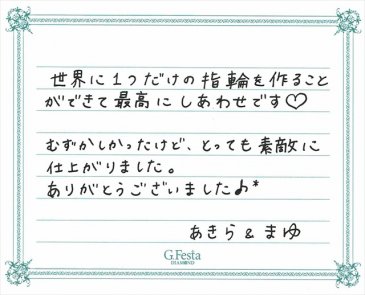 世界に1つだけの指輪を作ること
ができて最高にしあわせです♡
むずかしかったけど、とっても素敵に
仕上がりました。
ありがとうございました♪*
あきら & まゆ
G.Festa
DIAMOND